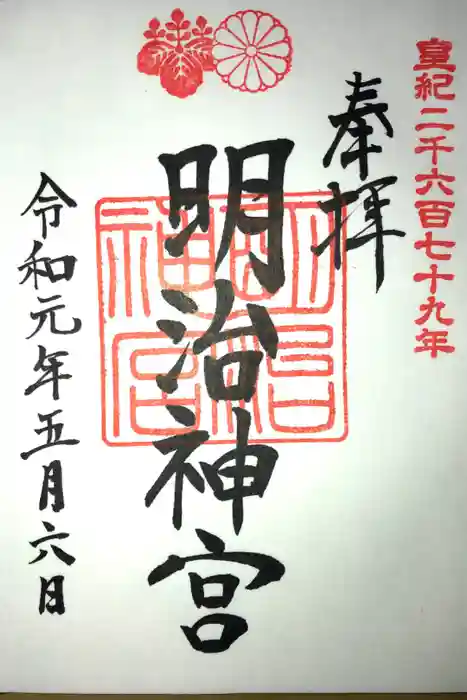 皇紀二千六百七十九年
奉拝
明治神宮
明治神宮
令和元年五月六日